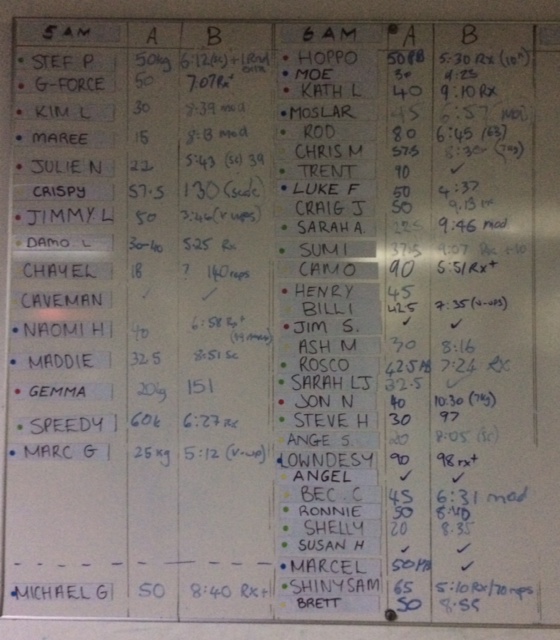 5 AM A B
STEF P 50kg 6:12
G-FORCE 50 7:07 Rx+
KIM L 30 8:39 mod
MAREE 15 8:13 mod
JULIE N 22 5:43 (sc) 39
CRISPY 57.5 130 (scale)
JIMMY L 50 3:46 (v-ups)
DAMO L 30-40 5:25 Rx
CHAYEL 18 ? 140 reps
CAVEMAN ✓ ✓
NAOMI H 40 6:58 Rx+
MADDIE 32.5 8:51 sc
GEMMA 20kg 151
SPEEDY 60k 6:27 Rx
MARC G 25kg 5:12 (v-up)
MICHAEL G 50 8:40 Rx+
6 AM A B
HOPPO 50 PB 5:30 Rx
MOE 50 9:25
KATH L 40 9:10 Rx
MOSLAR 45 6:57 mod
ROD 80 6:45 (63)
CHRIS M 57.5 8:30 (7kg)
TRENT 70 ✓
LUKE F 50 4:37
CRAIG J 50 9:13 rx
SARAH A 9:46 mod
SUMI 37.5 9:07 Rx
CAMO 90 5:51 Rx+
HENRY 45
BILLI 42.5 7:35 (v-ups)
JIM S. ✓ ✓
ASH M 30 8:16
ROSCO 42.5 PB 7:24 RX
SARAH LJ 32.5 ✓
JON N 40 10:30 (7kg)
STEVE H 30 97
ANGE S. 20 8:05 (sc)
LOWNDESY 90 98 rx+
ANGEL ✓ ✓
BEC C 45 6:31 mod
RONNIE 50 8:40
SHELLY 20 8:35
SUSAN H ✓ ✓
MARCEL 50 PB ✓
SHINYSAM 65 5:10 Rx/70 mps
BRETT 50 8:55